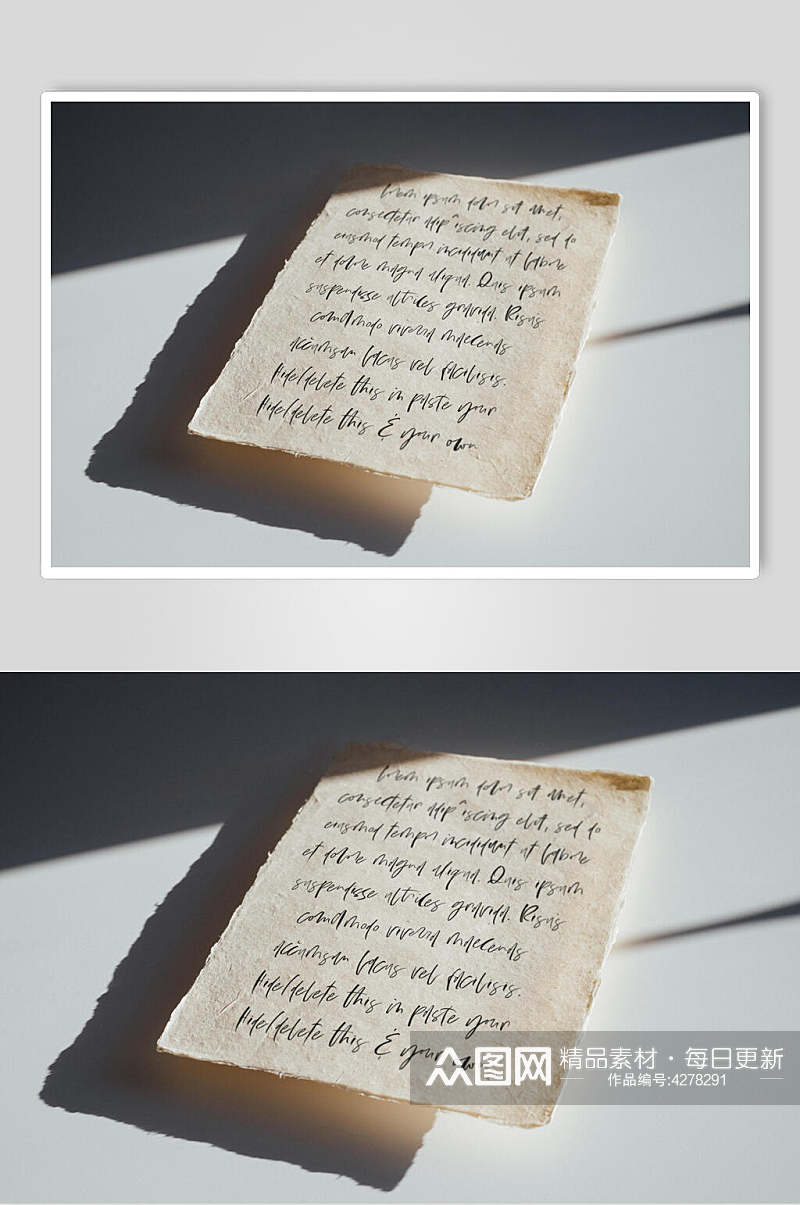 Lorem ipsum dolor sit amet,
consectetur adipiscing elit, sed do
eiusmod tempor incididunt ut labore
et dolore magna aliqua. Quis ipsum
suspendisse ultrices gravida. Risus
commodo viverra maecenas
accumsan lacus vel facilisis.
Hide/delete this in paste your
Hide/delete this & your own
Lorem ipsum dolor sit amet,
consectetur adipiscing elit, sed do
eiusmod tempor incididunt ut labore
et dolore magna aliqua. Quis ipsum
suspendisse ultrices gravida. Risus
commodo viverra maecenas
accumsan lacus vel facilisis.
Hide/delete this in paste your
Hide/delete this & your own
众图网
精品素材·每日更新
作品编号:4278291